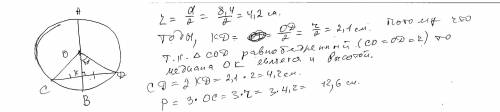 A
O
C
K
D
B
r = d/2 = 8,4/2 = 4,2 см.
тогда, KD = OD/2 = r/2 = 2,1 см. потому что
т.к. △ COD равнобедренный (CO=OD=r) то
медиана OK является и высотой.
CD = 2 KD = 2,1 · 2 = 4,2 см.
P = 3 · OC = 3 · r = 3 · 4,2 = 12,6 см.